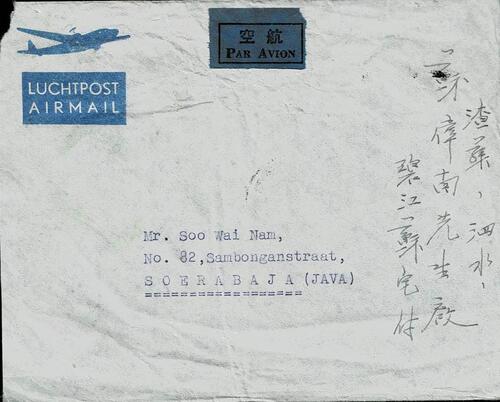 LUCHTPOST
AIRMAIL
空航
PAR AVION
Mr. Soo Wai Nam,
No. 82,Sambonganstraat,
SOERABAJA (JAVA)
渣華，泗水，
蘇偉南先生啟
碧江蘇宅